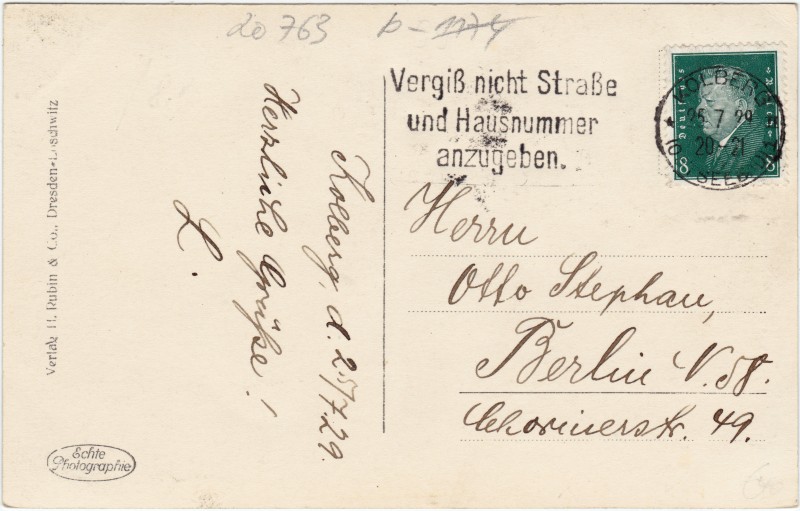 20 763 b - 1174
Vergiß nicht Straße
und Hausnummer
anzugeben.
KOLBERG
25.7.29
20-21
SEEB
Deutsches Reich
8 8
Kolberg, d. 25/7.29.
Herzliche Grüße!
L.
Herrn
Otto Stephan,
Berlin N.58.
Chorinerstr. 49.
Verlag H. Rubin & Co., Dresden-Loschwitz
Echte
Photographie